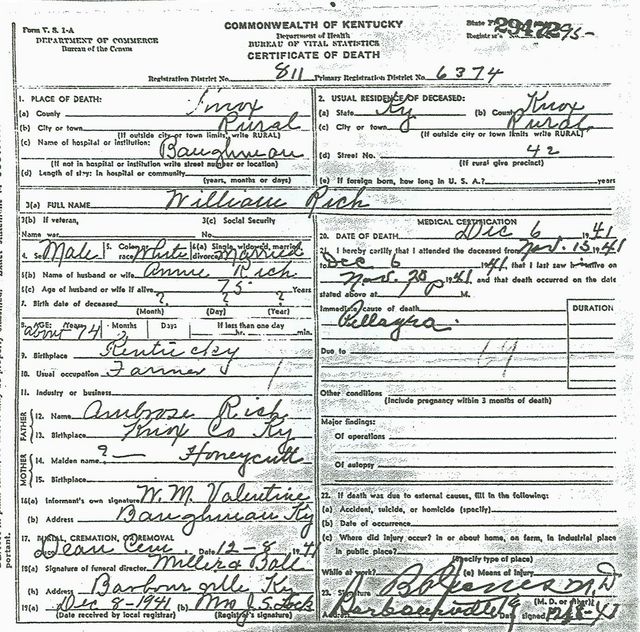 Form V. S. 1-A
DEPARTMENT OF COMMERCE
Bureau of the Census
COMMONWEALTH OF KENTUCKY
Department of Health
BUREAU OF VITAL STATISTICS
CERTIFICATE OF DEATH
State F
Registrar's No. 295-
Registration District No. 811 Primary Registration District No. 6374
1. PLACE OF DEATH:
(a) County Knox
(b) City or town Rural
(If outside city or town limits, write RURAL)
(c) Name of hospital or institution:
Baughman
(If not in hospital or institution write street number or location)
(d) Length of stay: In hospital or community
(years, months or days)
2. USUAL RESIDENCE OF DECEASED:
(a) State Ky (b) County Knox
(c) City or town Rural
(If outside city or town limits, write RURAL)
(d) Street No. 42
(If rural give precinct)
(e) If foreign born, how long in U. S. A.? years
3(a) FULL NAME William Rich
3(b) If veteran,
Name war
3(c) Social Security
No.
4. Sex Male 5. Color or race White 6(a) Single, widowed, married, divorced Married
6(b) Name of husband or wife Annie Rich
6(c) Age of husband or wife if alive 75 Years
7. Birth date of deceased ? ? ?
(Month) (Day) (Year)
8. AGE: Years about 74 Months ? Days If less than one day
hr. min.
9. Birthplace Kentucky
10. Usual occupation Farmer
11. Industry or business
FATHER
12. Name Ambrose Rich
13. Birthplace Knox Co Ky
MOTHER
14. Maiden name ? — Honeycutt
15. Birthplace
16(a) Informant's own signature W. M. Valentine
(b) Address Baughman Ky
17. BURIAL, CREMATION, OR REMOVAL
Dean Cem. Date 12-8 1941
18(a) Signature of funeral director
(b) Address Barbourville Ky
19(a) Dec 8-1941 (b) Mrs J. S. Lock
(Date received by local registrar) (Registrar's signature)
MEDICAL CERTIFICATION
20. DATE OF DEATH Dec 6 1941
21. I hereby certify that I attended the deceased from Nov. 15 1941
to Dec 6 1941 that I last saw him alive on
Nov. 30 1941 and that death occurred on the date
stated above at M.
Immediate cause of death DURATION
Pellagra
Due to
Other conditions
(Include pregnancy within 3 months of death)
Major findings:
Of operations
Of autopsy
22. If death was due to external causes, fill in the following:
(a) Accident, suicide, or homicide (specify)
(b) Date of occurrence
(c) Where did injury occur? In or about home, on farm, in industrial place
in public place?
(Specify type of place)
While at work? (e) Means of injury
23. Signature M D
(M. D. or other)
Address Barbourville Ky Date signed
portant.